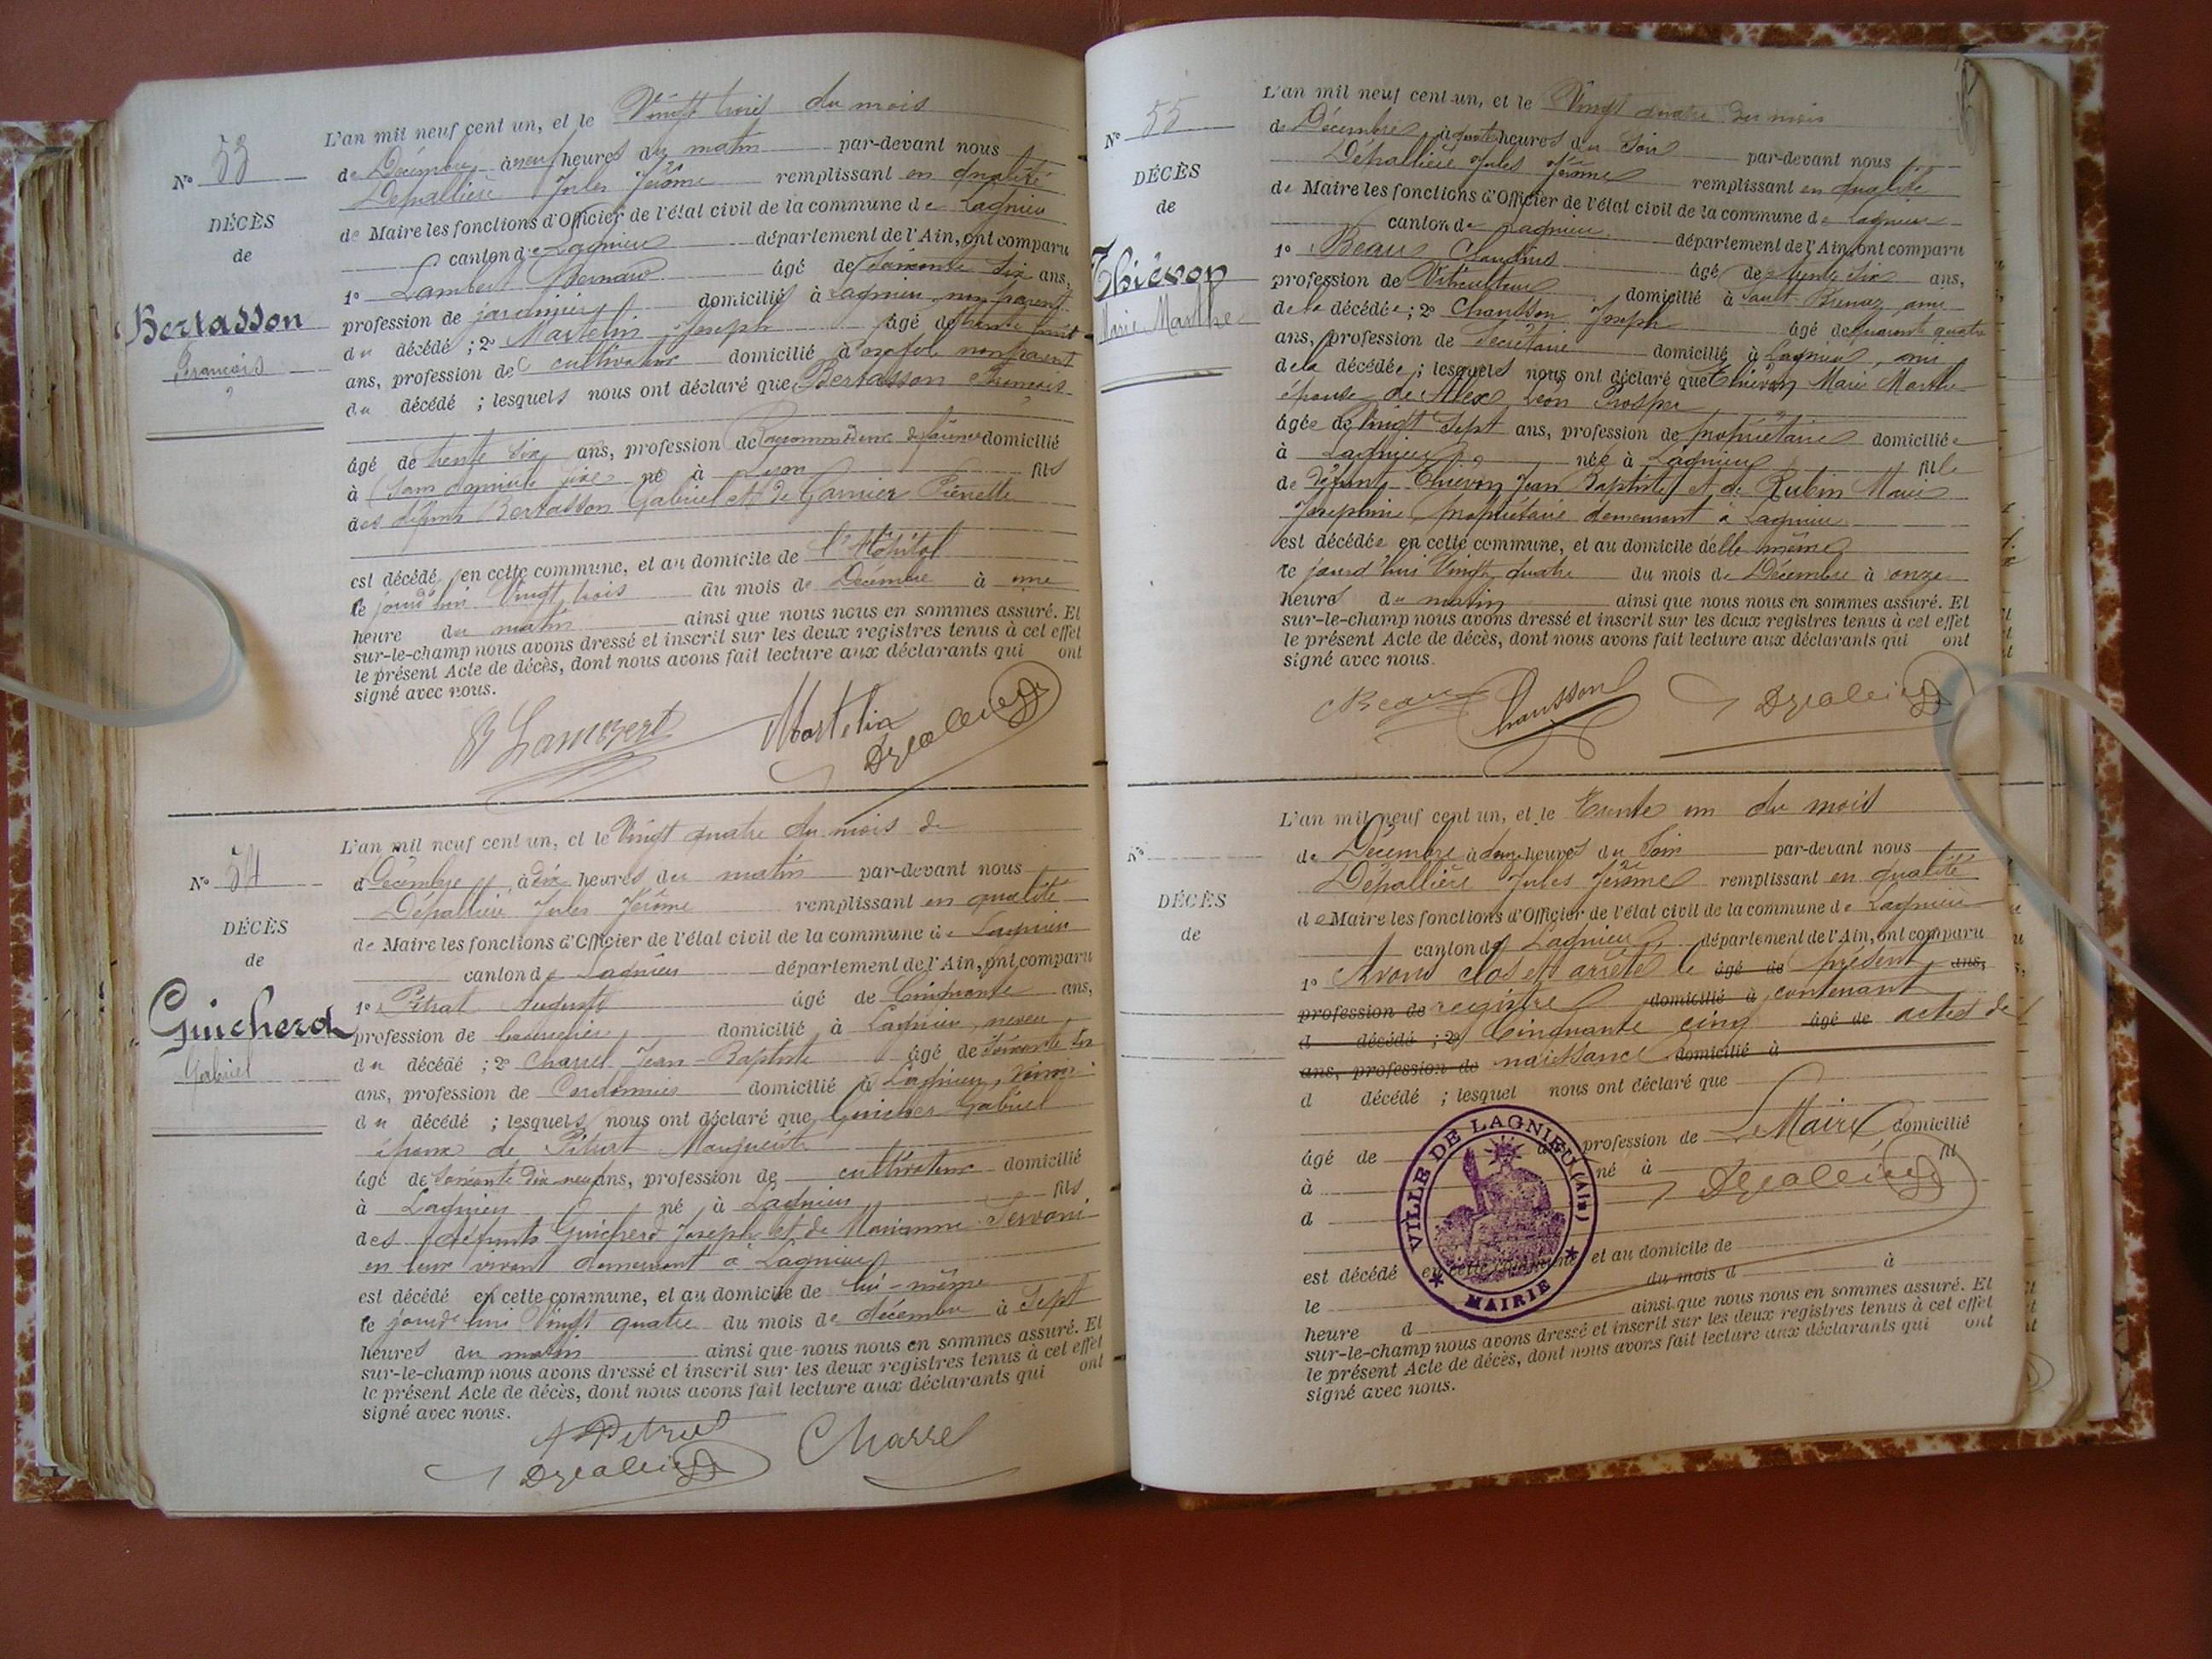 Nº 53
DÉCÈS
de
Bertasson
François
L'an mil neuf cent un, et le Vingt trois du mois
de Décembre à neuf heures du matin par-devant nous
Dépallière Jules Jérôme remplissant en qualité
de Maire les fonctions d'Officier de l'état civil de la commune de Lagnieu
canton de Lagnieu département de l'Ain, ont comparu
1º Lambert Bernard âgé de soixante six ans,
profession de jardinier domicilié à Lagnieu, non parent
du décédé ; 2º Martelin Joseph âgé de trente huit
ans, profession de cultivateur domicilié à non parent
du décédé ; lesquels nous ont déclaré que Bertasson François
âgé de trente six ans, profession de Raccommodeur de faïence domicilié
à sans domicile fixe né à Lyon fils
des défunts Bertasson Gabriel et de Garnier Pierrette
est décédé en cette commune, et au domicile de l'Hôpital
le jourd'hui Vingt trois du mois de Décembre à une
heure du matin ainsi que nous nous en sommes assuré. Et
sur-le-champ nous avons dressé et inscrit sur les deux registres tenus à cet effet
le présent Acte de décès, dont nous avons fait lecture aux déclarants qui ont
signé avec nous.
B Lambert Martelin Dépallière
Nº 54
DÉCÈS
de
Guicherd
Gabriel
L'an mil neuf cent un, et le Vingt quatre du mois de
Décembre à dix heures du matin par-devant nous
Dépallière Jules Jérôme remplissant en qualité
de Maire les fonctions d'Officier de l'état civil de la commune de Lagnieu
canton de Lagnieu département de l'Ain, ont comparu
1º Pétrat Auguste âgé de Cinquante ans,
profession de domicilié à Lagnieu, neveu
du décédé ; 2º Charrel Jean-Baptiste âgé de soixante six
ans, profession de Cordonnier domicilié à Lagnieu, voisin
du décédé ; lesquels nous ont déclaré que Guicher Gabriel
époux de Marguerite
âgé de soixante dix neuf ans, profession de cultivateur domicilié
à Lagnieu né à Lagnieu fils
des défunts Guicherd Joseph et de Marianne
en leur vivant demeurant à Lagnieu
est décédé en cette commune, et au domicile de lui-même
le jourd'hui Vingt quatre du mois de décembre à Sept
heures du matin ainsi que nous nous en sommes assuré. Et
sur-le-champ nous avons dressé et inscrit sur les deux registres tenus à cet effet
le présent Acte de décès, dont nous avons fait lecture aux déclarants qui ont
signé avec nous.
Charrel
Dépallière
Nº 55
DÉCÈS
de
Thiévon
Marie Marthe
L'an mil neuf cent un, et le Vingt quatre du mois
de Décembre à heures du Soir par-devant nous
Dépallière Jules Jérôme remplissant en qualité
de Maire les fonctions d'Officier de l'état civil de la commune de Lagnieu
canton de Lagnieu département de l'Ain, ont comparu
1º Beau Claudius âgé de trente six ans,
profession de Viticulteur domicilié à Sault-Brénaz, ami
de la décédée ; 2º Chausson Joseph âgé de quarante quatre
ans, profession de Secrétaire domicilié à Lagnieu, ami
de la décédée ; lesquels nous ont déclaré que Thiévon Marie Marthe
épouse de Alex Léon Prosper
âgée de Vingt Sept ans, profession de propriétaire domiciliée
à Lagnieu née à Lagnieu fille
de défunt Thiévon Jean Baptiste et de Rubin Marie
Josephine propriétaire demeurant à Lagnieu
est décédée en cette commune, et au domicile d'elle même
le jourd'hui Vingt quatre du mois de Décembre à onze
heures du matin ainsi que nous nous en sommes assuré. Et
sur-le-champ nous avons dressé et inscrit sur les deux registres tenus à cet effet
le présent Acte de décès, dont nous avons fait lecture aux déclarants qui ont
signé avec nous.
Beau Chausson Dépallière
Nº
DÉCÈS
de
L'an mil neuf cent un, et le Trente un du mois
de Décembre à douze heures du Soir par-devant nous
Dépallière Jules Jérôme remplissant en qualité
de Maire les fonctions d'Officier de l'état civil de la commune de Lagnieu
canton de Lagnieu département de l'Ain, ont comparu
1º Avons clos et arrêté le âgé de présent ans,
profession de registre domicilié à contenant
d décédé ; 2º Cinquante cinq âgé de actes de
ans, profession de naissance domicilié à
d décédé ; lesquel nous ont déclaré que
âgé de ans, profession de Le Maire domicilié
à né à fil
d Dépallière
est décédé en cette commune, et au domicile de
le du mois d à
heure d ainsi que nous nous en sommes assuré. Et
sur-le-champ nous avons dressé et inscrit sur les deux registres tenus à cet effet
le présent Acte de décès, dont nous avons fait lecture aux déclarants qui ont
signé avec nous.
VILLE DE LAGNIEU (Ain)
MAIRIE